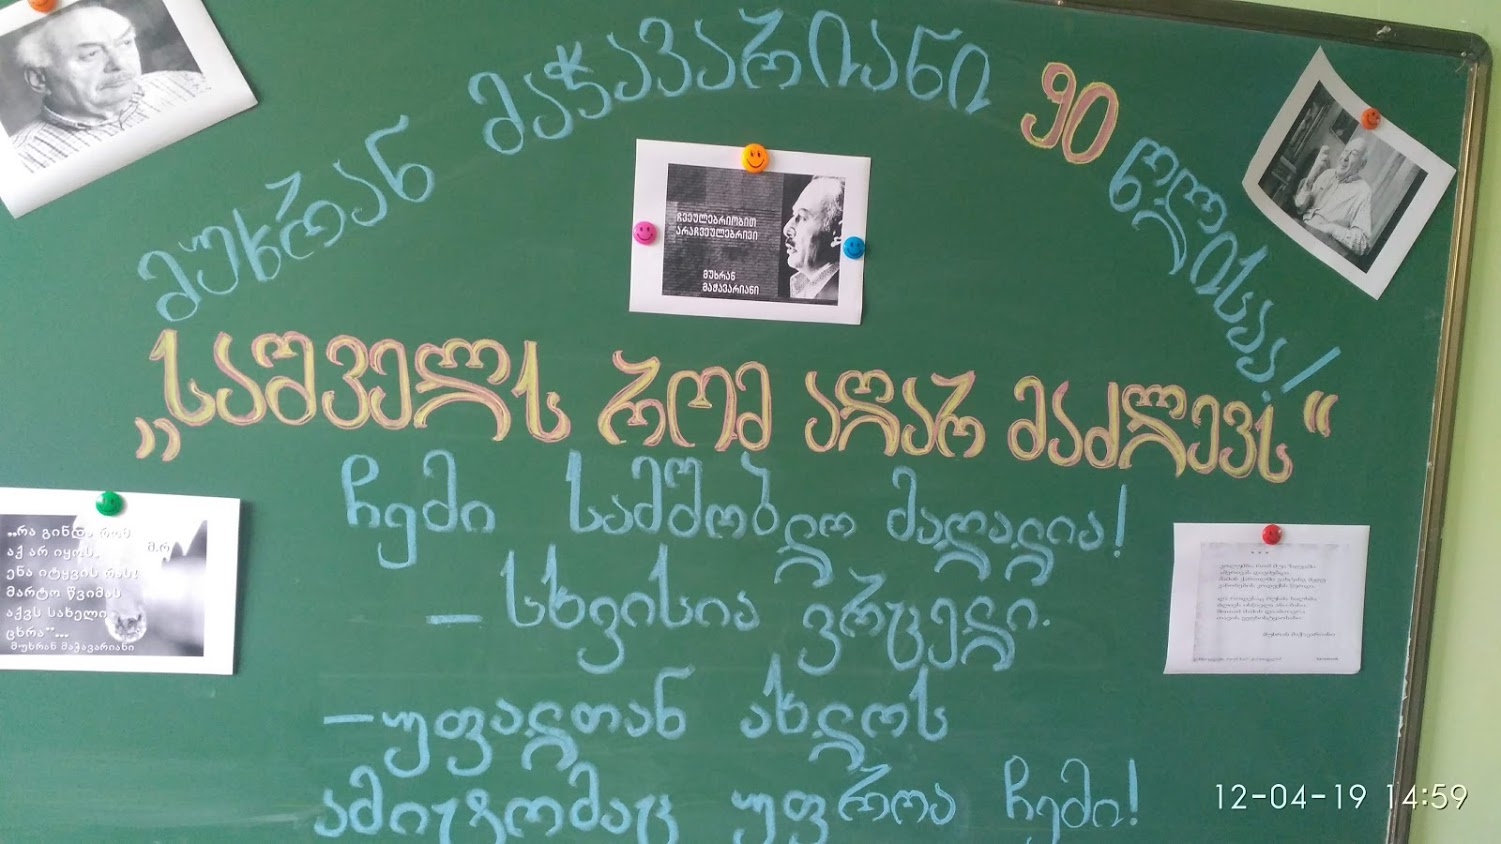 მუხრან მაჭავარიანი 90 წლისაა!
ჩვეულებრიობით
არაჩვეულებრივი
მუხრან
მაჭავარიანი
„საშველს რომ აღარ მაძლევს“
ჩემი სამშობლო მაღალია!
– სხვისია ვრცელი.
– უფალთან ახლოს
ამიტომაც უფროა ჩემი!
„რა გინდა რომ
აქ არ იყოს,
მ.რ
ენა იტყვის რას!
მარტო წვიმას
აქვს სახელი
ცხრა“...
მუხრან მაჭავარიანი
* * *
მუხრან მაჭავარიანი
12-04-19 14:59